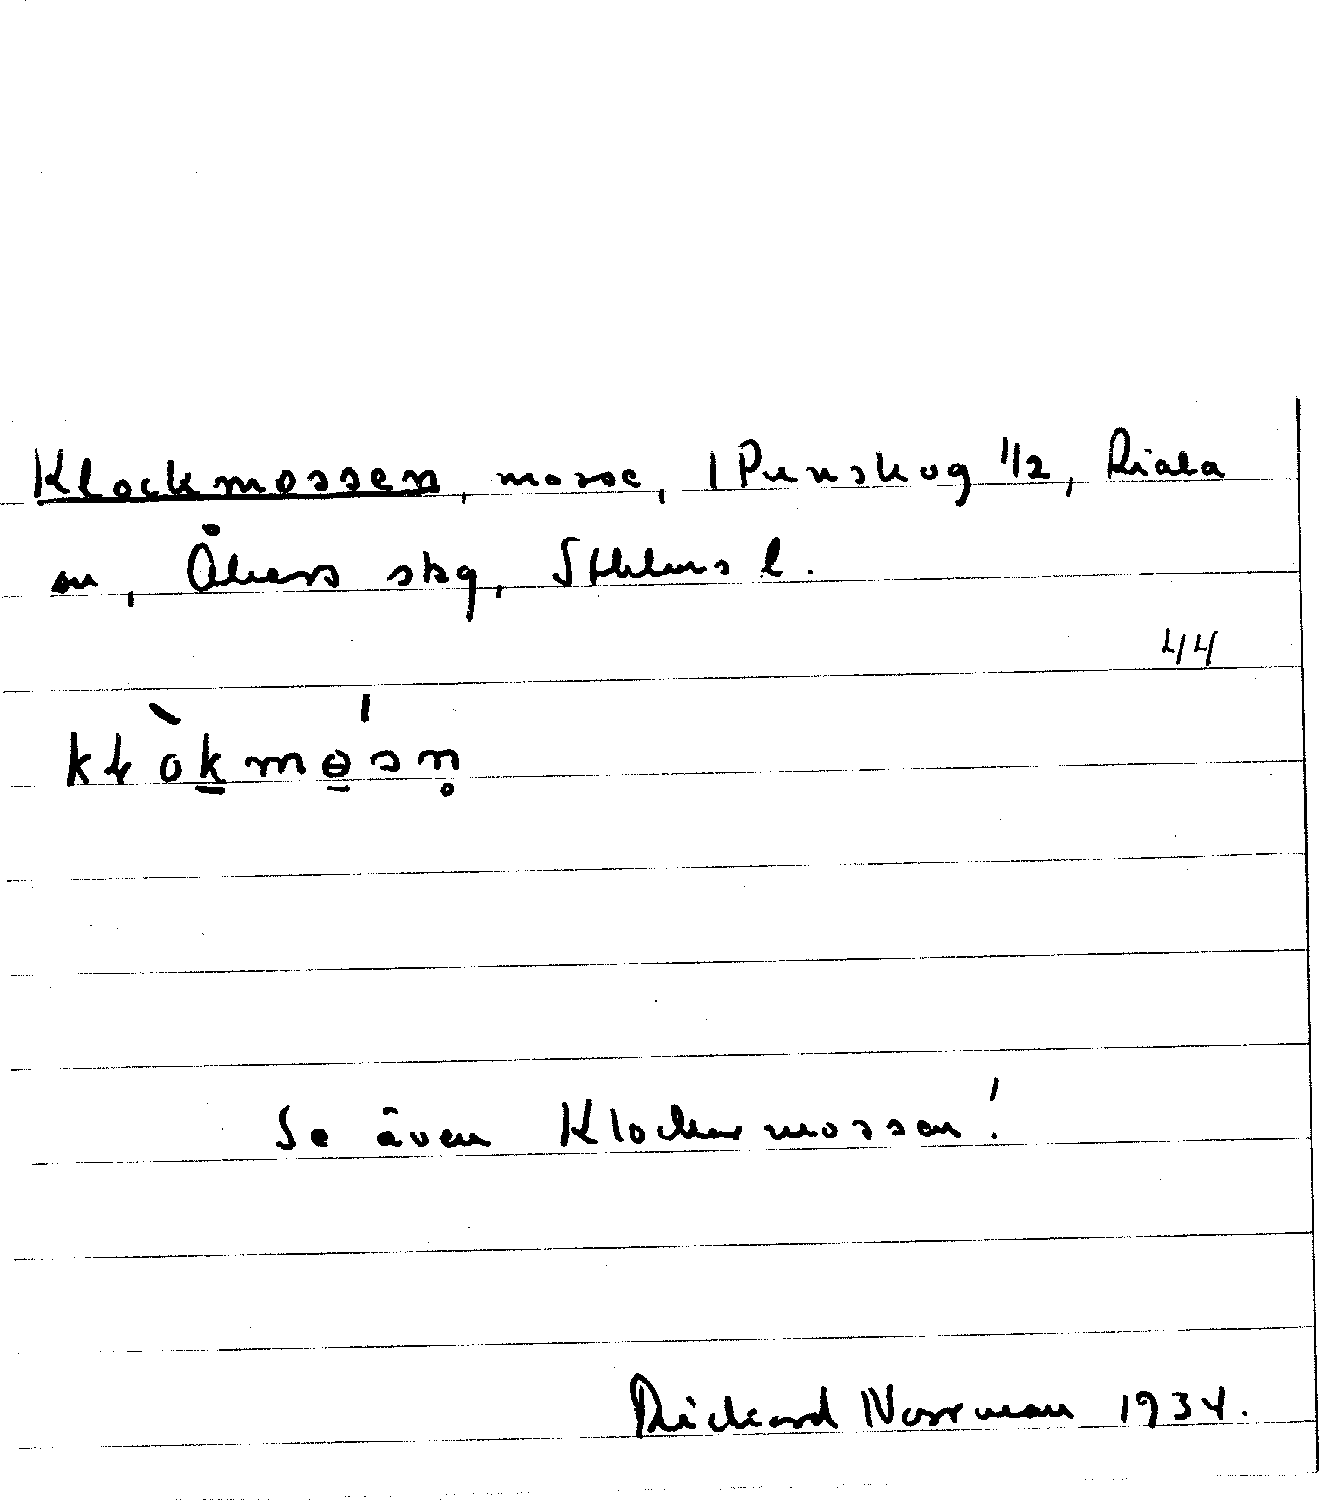 Klockmossen, mosse, 1 Penskog 1/2, Riala
sn, Åkers skg, Sthlms l.
44
kłòkmɵ́sn̥
Se även Klockarmossen!
Rickard Norrman 1934.